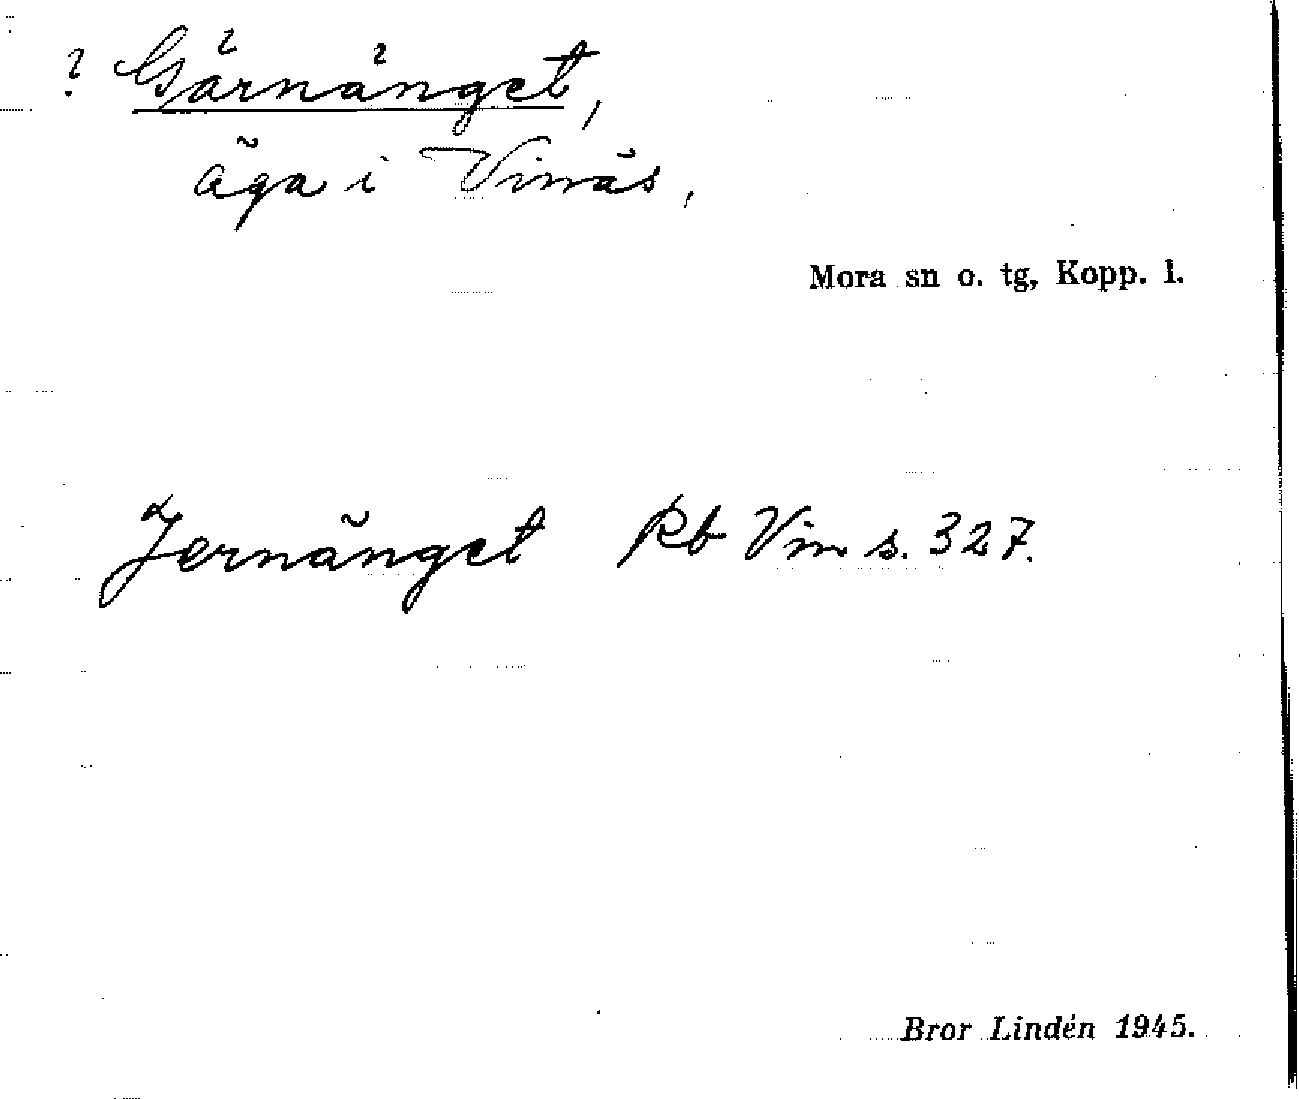 ? Gärnänget,
äga i Vinäs,
Mora sn o. tg, Kopp. l.
Jernänget Rb Vin s. 327.
Bror Lindén 1945.